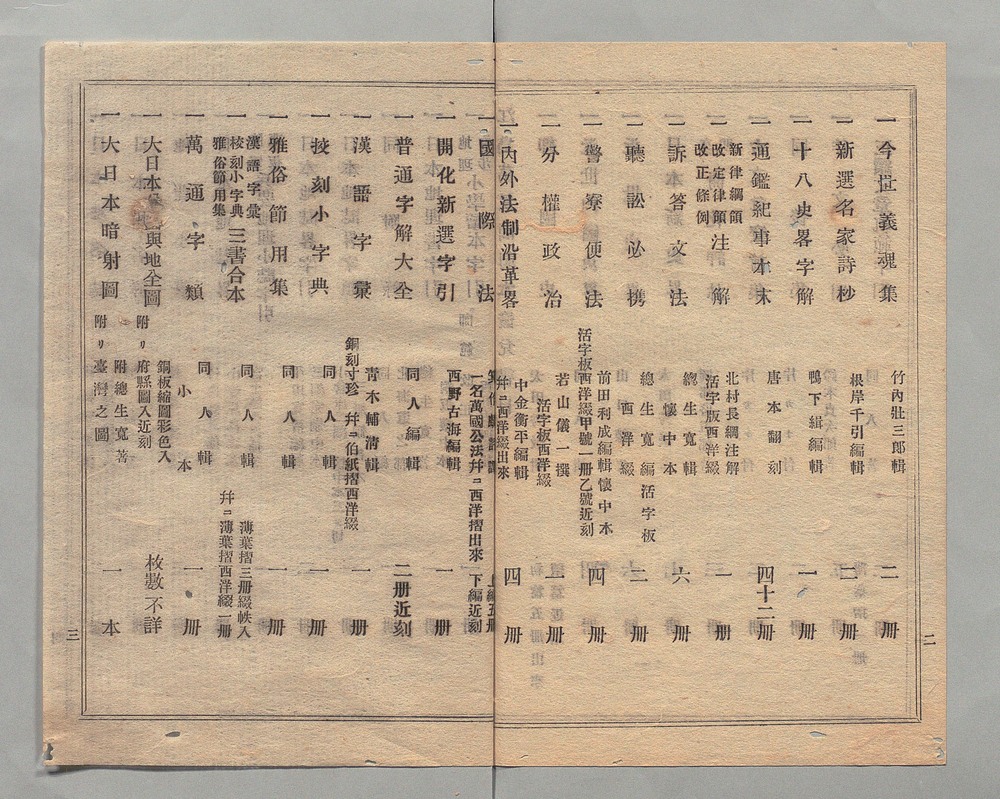 一 今世義魂集 竹内壯三郎輯 二冊
一 新選名家詩杪 根岸千引編輯 二冊
一 十八史畧字解 鴨下緝編輯 一冊
一 通鑑紀事本末 唐本翻刻 四十二冊
一 新律綱領 改定律領 改正條例 注解 北村長綱注解 活字版西洋綴 一冊
一 訴答文法 總生寬輯 懷中本 六冊
一 聽訟必携 總生寬編 活字板 西洋綴 二冊
一 警察便法 前田利成編輯懷中本 活字板西洋綴甲號一册乙號近刻 四冊
一 分權政治 若山儀一撰 活字板西洋綴 一冊
一 内外法制沿革畧 中金衡平編輯 幷ニ西洋綴出來 四冊
一 國際法 一名萬國公法幷ニ西洋摺出來 下編近刻
一 開化新選字引 西野古海編輯 一冊
一 普通字解大全 同人編輯 二册近刻
一 漢語字彙 靑木輔淸輯 銅刻寸珍 幷ニ伯紙摺西洋綴 一冊
一 挍刻小字典 同人輯 一冊
一 雅俗節用集 同人輯 一冊
一 漢語字彙 挍刻小字典 雅俗節用集 三書合本 同人輯 薄葉摺三册綴帙入 幷ニ薄葉摺西洋綴一册
一 萬通字類 同人輯 小本 一冊
一 大日本 輿地全圖 銅板縮圖彩色入 附リ府縣圖入近刻 枚數不詳
一 大日本暗射圖 附總生寬著 附リ臺灣之圖 一本
二
三